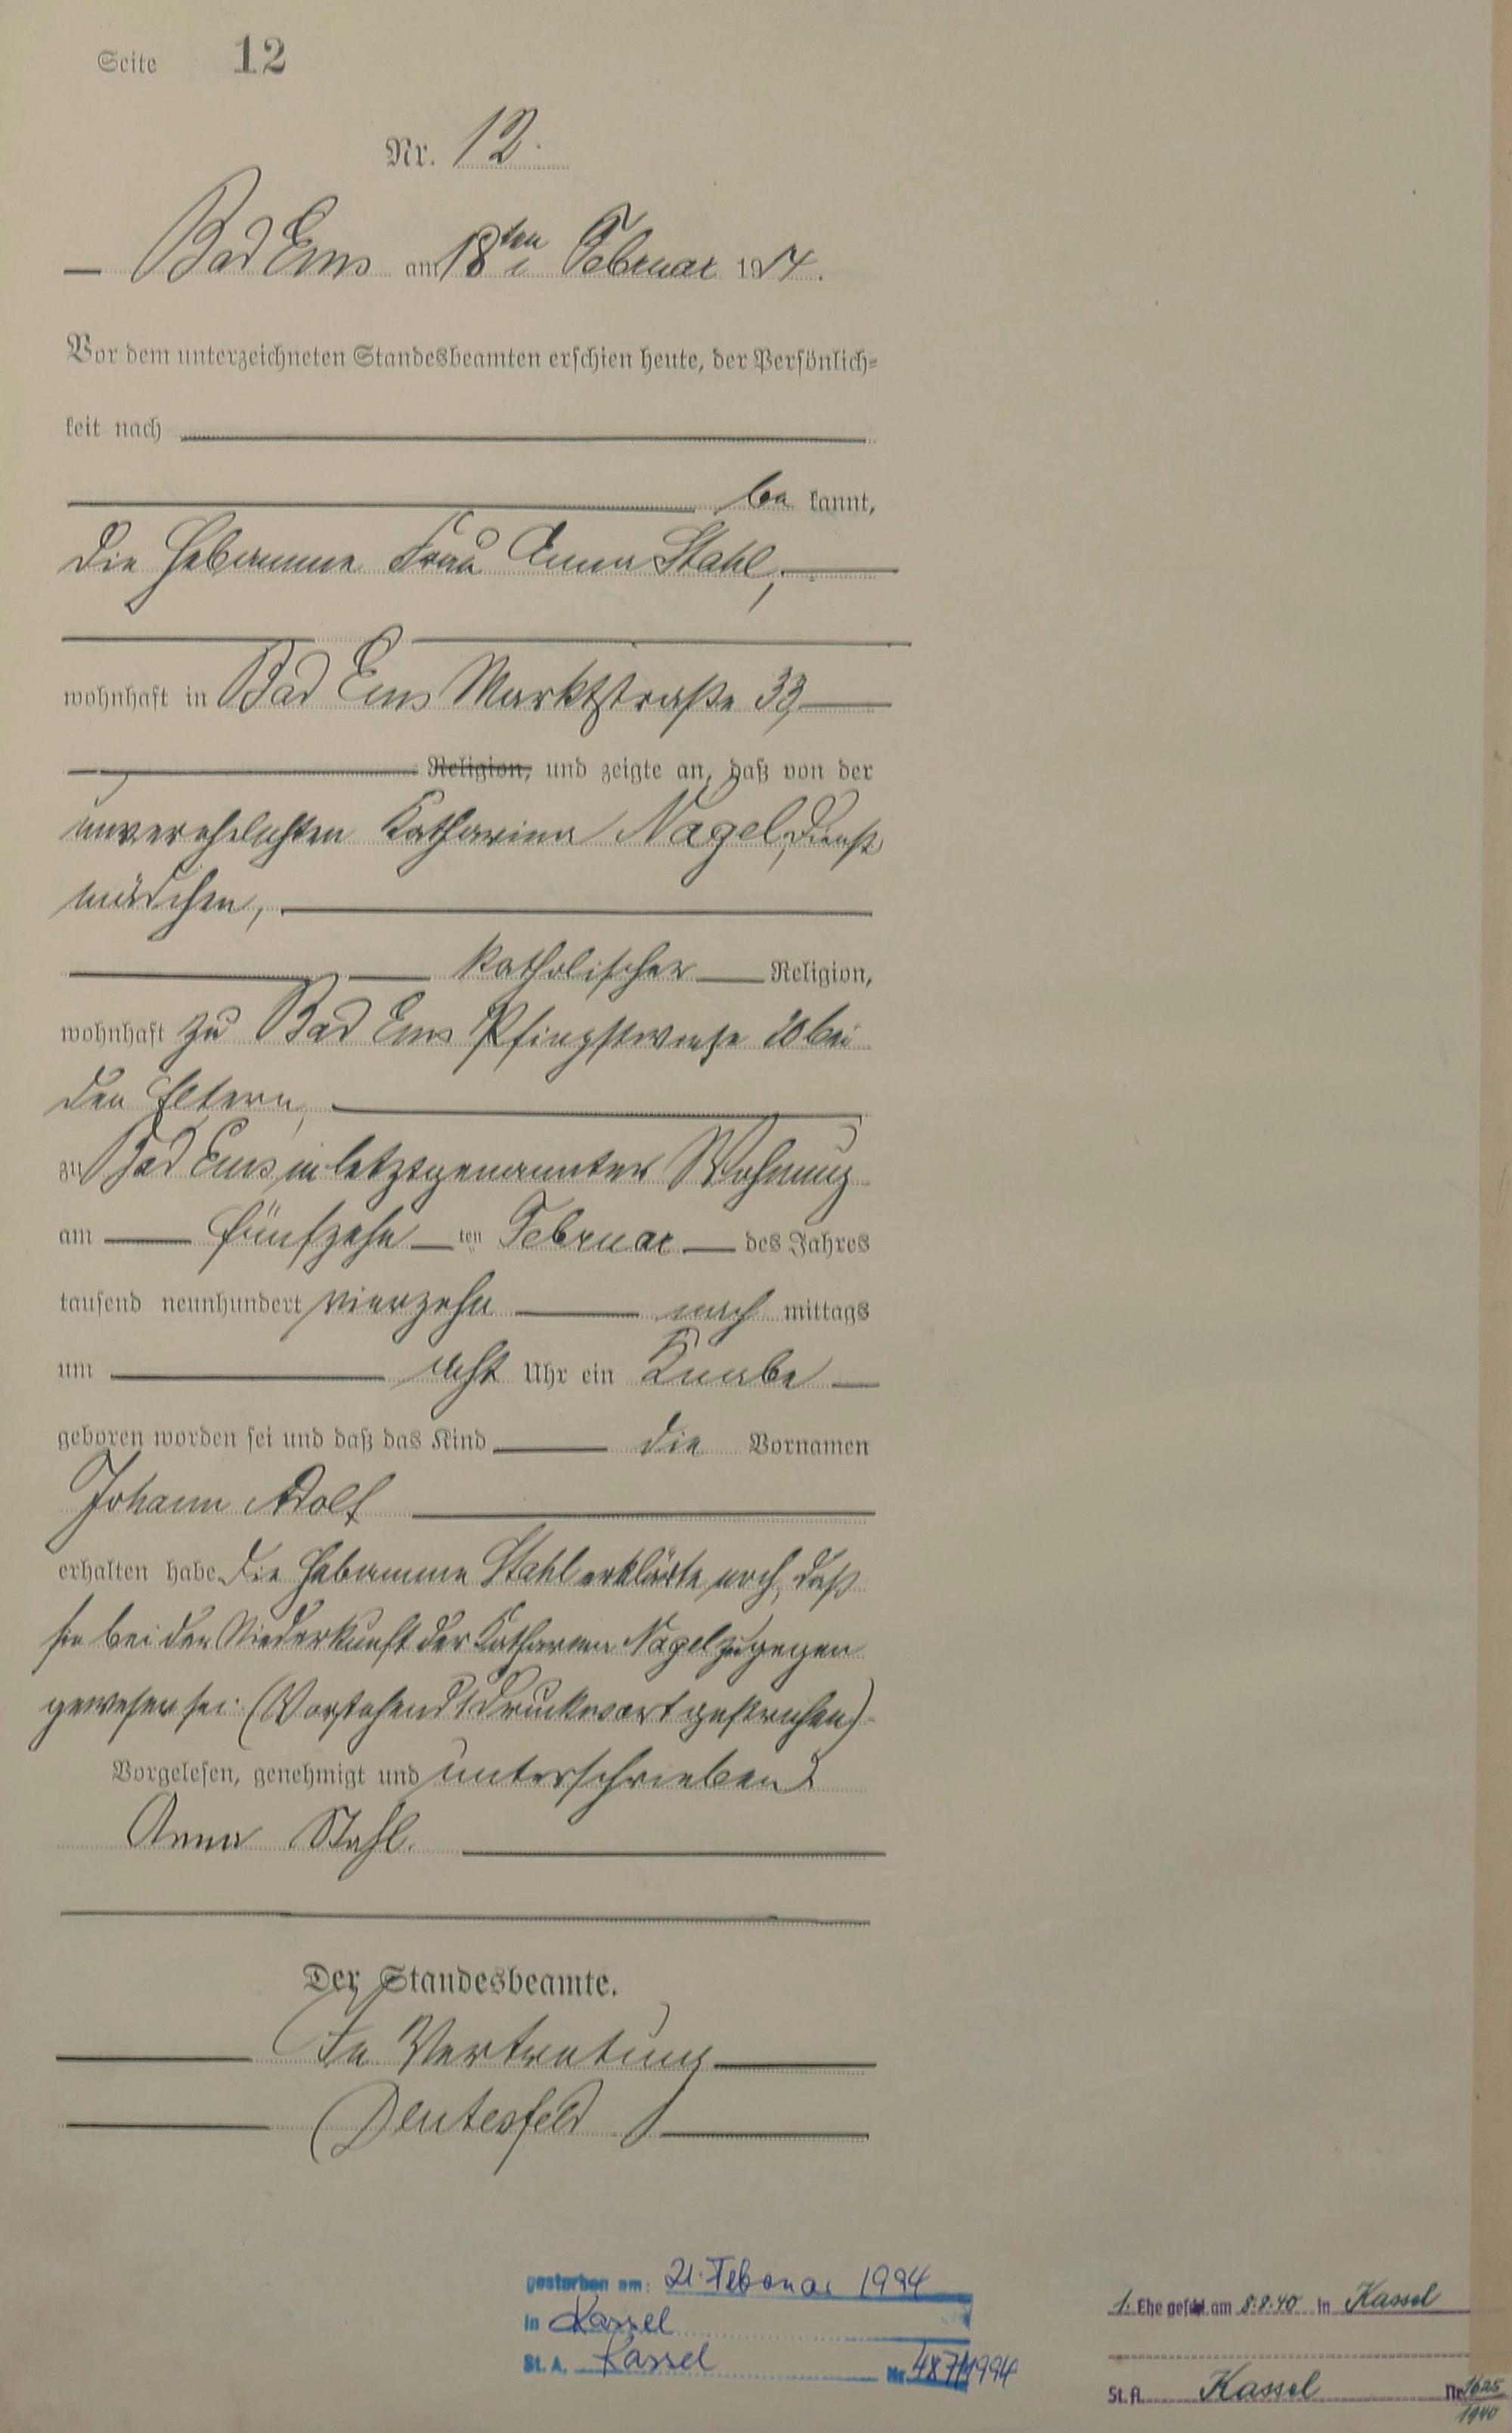 Seite 12
Nr. 12.
Bad Ems am 18ten Februar 1914.
Vor dem unterzeichneten Standesbeamten erschien heute, der Persönlich-
keit nach
be kannt,
die Hebamme Frau Anna Stahl,
wohnhaft in Bad Ems Marktstraße 33,
Religion, und zeigte an, daß von der
unverehelichten Katharina Nagel, Dienst
mädchen,
katholischer Religion,
wohnhaft zu Bad Ems Pfingstwiese 20 bei
den Eltern,
zu Bad Ems in letztgenannter Wohnung
am fünfzehn ten Februar des Jahres
tausend neunhundert vierzehn nach mittags
um acht Uhr ein Knabe
geboren worden sei und daß das Kind die Vornamen
Johann Adolf
erhalten habe. Die Hebamme Stahl erklärte noch, daß
sie bei der Niederkunft der Katharina Nagel zugegen
gewesen sei. (Vorstehend 1 Druckwort gestrichen)
Vorgelesen, genehmigt und unterschrieben
Anna Stahl.
Der Standesbeamte.
In Vertretung
gestorben am: 21. Februar 1994
in Kassel
St. A. Kassel Nr. 487/1994
1. Ehe geschl. am 8.8.40 in Kassel
St. A. Kassel Nr. 1625/1940